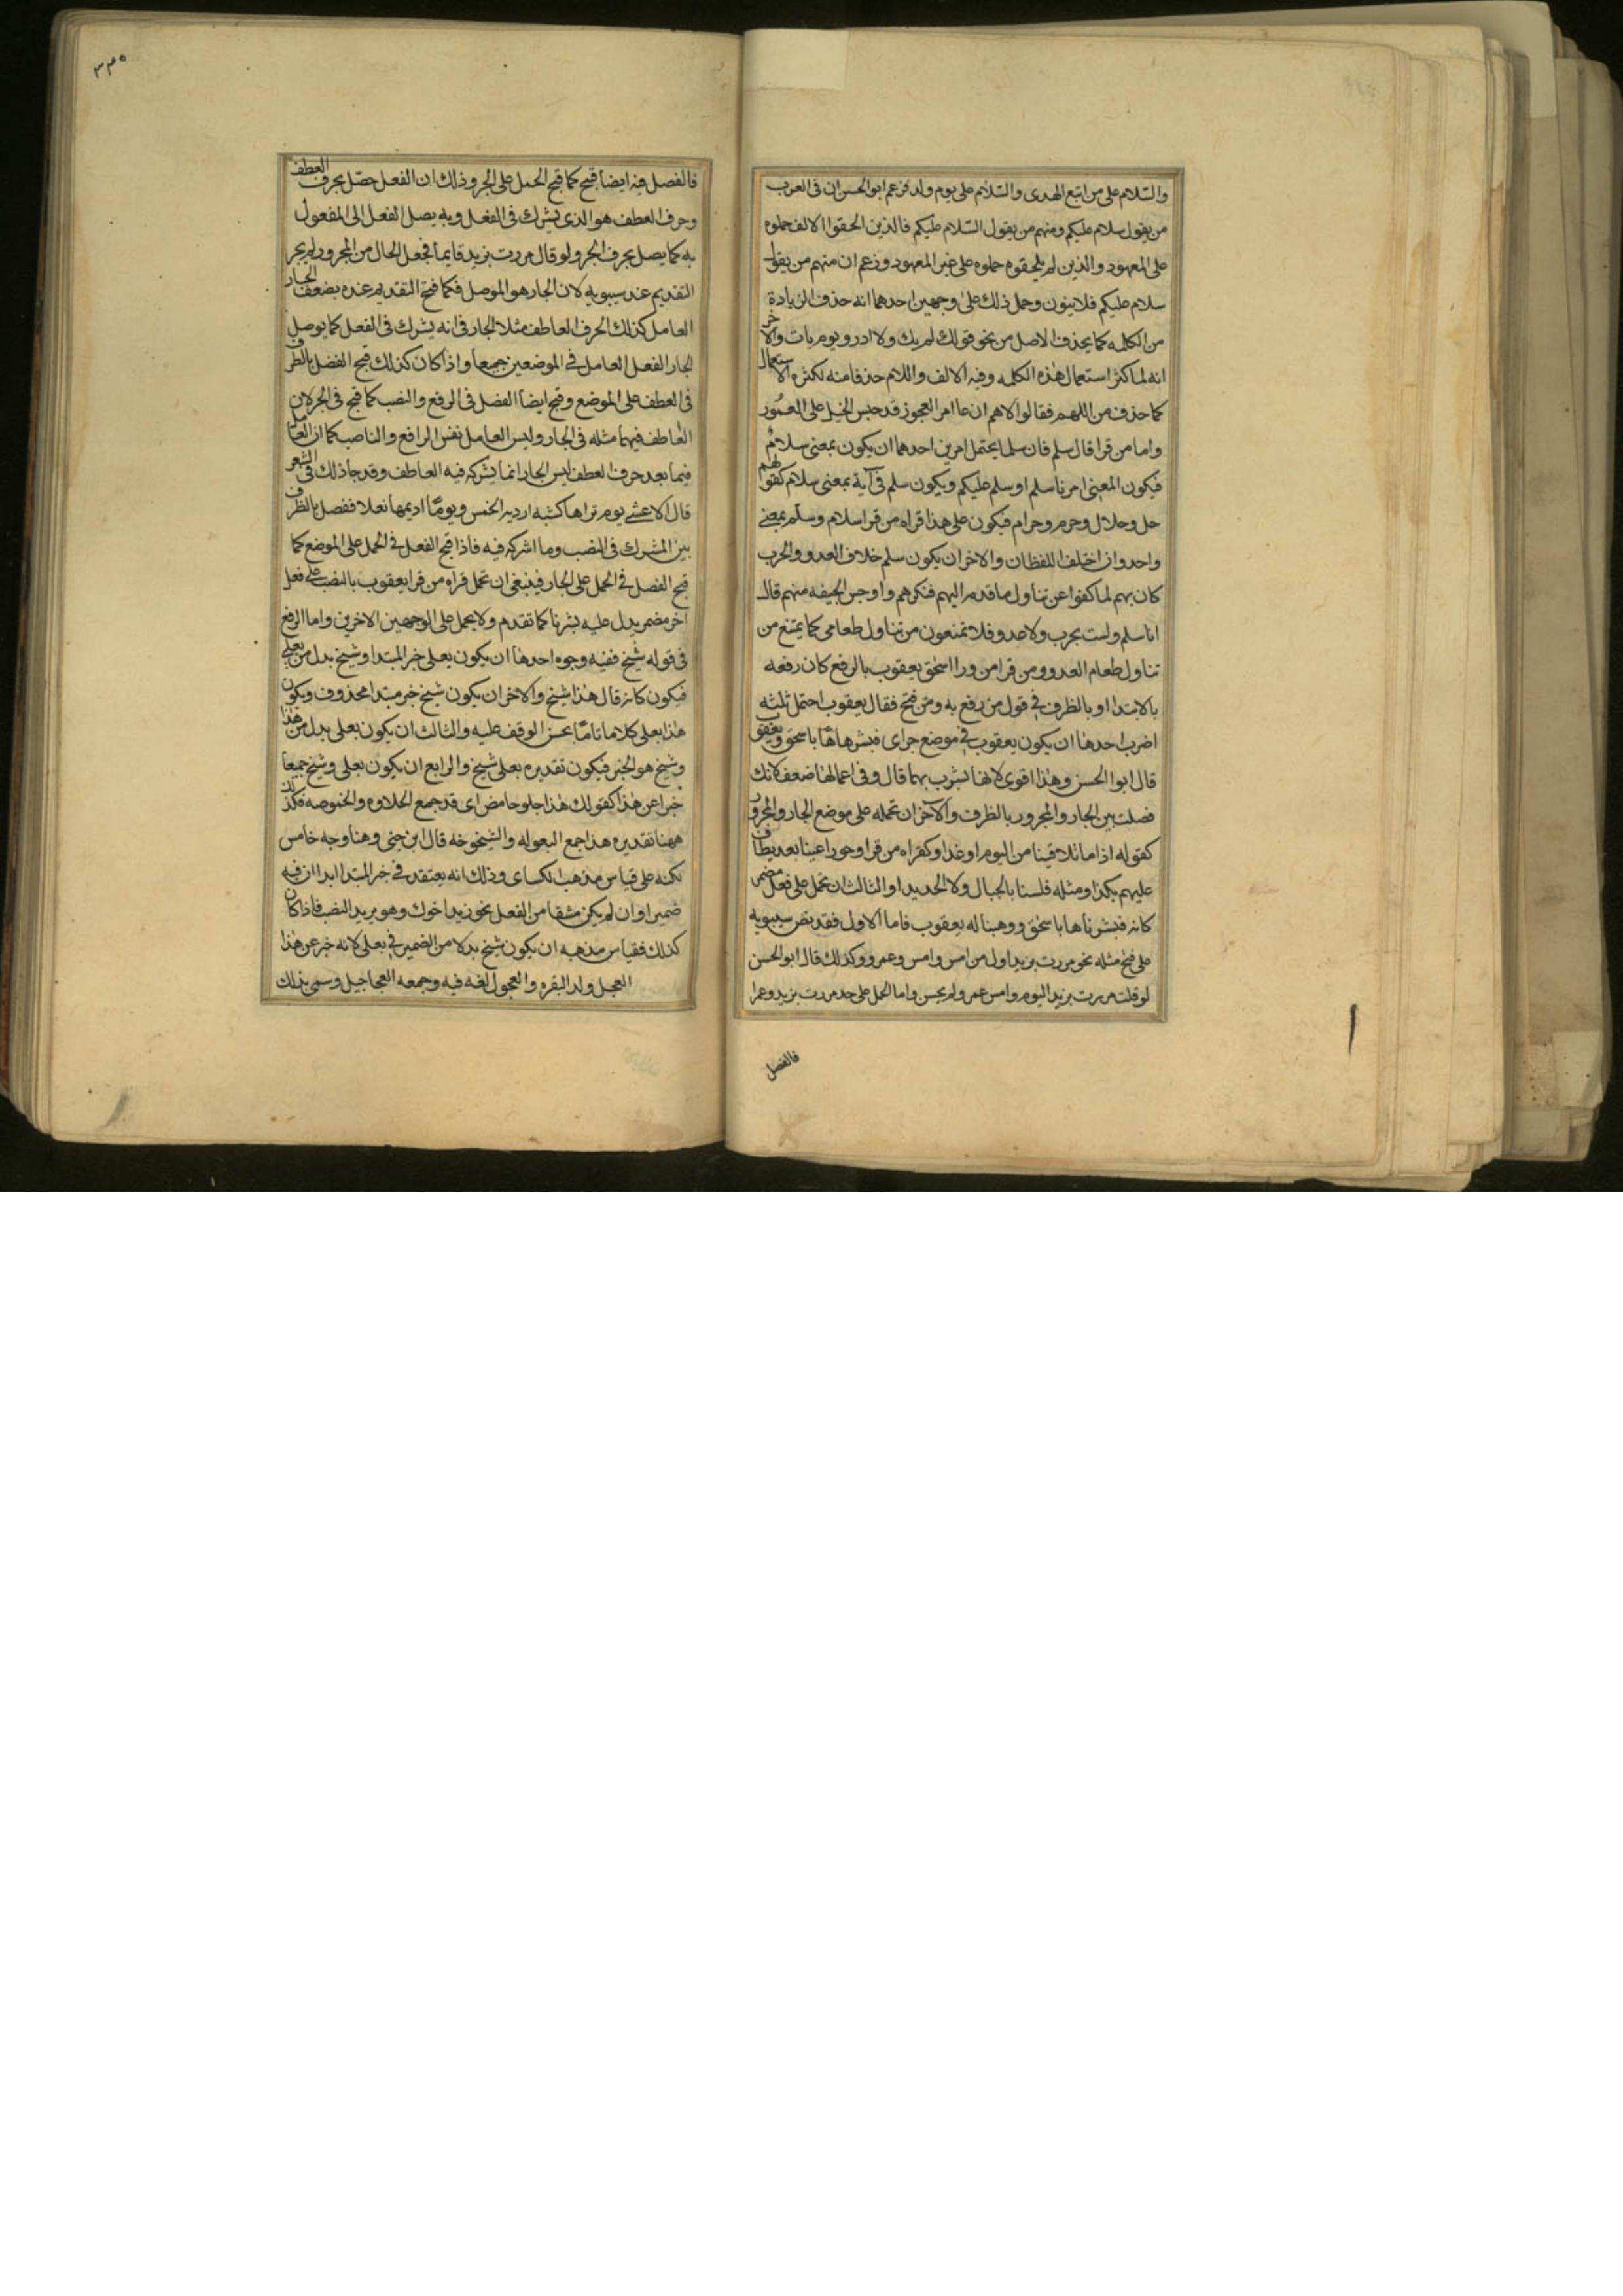 والسّلام على من اتبع الهدى والسّلام على يوم ولد فزعم ابو الحسن ان فى العرب
من يقول سلام عليكم ومنهم من يقول السّلام عليكم فالذين الحقوا الالف حملوه
على المعهود والذين لم يلحقوه حملوه على غير المعهود وزعم ان منهم من يقول
سلام عليكم فلا ينون وحمل ذلك على وجهين احدهما انه حذف الزيادة
من الكلمه كما يحذف الاصل من نحو قولك لم يك ولا ادر ويوم يات والاخر
انه لما كثر استعمال هذه الكلمه وفيه الالف واللام حذفا منه لكثره الاستعمال
كما حذف من اللهم فقالوا لاهم ان عامر العجوز قد حبس الخيل على
واما من قرا قال سلم فان سلما يحتمل امرين احدهما ان يكون بمعنى سلام
فيكون المعنى امرنا سلم او سلم عليكم ويكون سلم فى آية بمعنى سلام كقولهم
حل وحلال وحرم وحرام فيكون على هذا قراه من قرا سلام وسلم بمعنى
واحد وان اختلف اللفظان والاخر ان يكون سلم خلاف العدو والحرب
كان بهم لما كفوا عن تناول ما قدم اليهم فنكرهم واوجس الخيفه منهم قال
انا سلم ولست بحرب ولا عدو فلا تمتنعون من تناول طعامى كما يمتنع من
تناول طعام العدو ومن قرا من ورا اسحق يعقوب بالرفع كان رفعه
بالابتدا او بالظرف فى قول من رفع به ومن فتح فقال يعقوب احتمل ثلثه
اضرب احدها ان يكون يعقوب فى موضع جر اى فبشرهاها باسحق ويعقوب
قال ابو الحسن وهذا اقوى لانها بشرب بهما قال وفى اعمالها ضعف لانك
فصلت بين الجار والمجرور بالظرف والآخر ان تحمله على موضع الجار والمجرور
كقوله اذا ما تلاقينا من اليوم او غدا وكقراه من قرا وحورا عينا بعد يطاف
عليهم بكذا ومثله فلسنا بالجبال ولا الحديدا والثالث ان تحمل على فعل مضمر
كانه فبشرناها باسحق ووهبنا له يعقوب فاما الاول فقد نص سيبويه
على فتح مثله نحو مررت بزيد اول من امس وامس وعمرو وكذلك قال ابو الحسن
لو قلت مررت بزيد اليوم وامس عمر ولم يحسن واما الحمل على حد مررت بزيد وعمرا
فالفصل
٣٣٥
فالفصل فيه ايضا قبح كما قبح الحمل على الجر وذلك ان الفعل حصّل بحرف العطف
وحرف العطف هو الذى يشرك فى الفعل وبه يصل الفعل الى المفعول
به كما يصل بحرف الجر ولو قال مررت بزيد قايما فجعل الحال من المجرور لم يجز
التقديم عند سيبويه لان الجار هو الموصل فكما قبح التقديم عنده بضعف الجار
العامل كذلك الحرف العاطف مثل الجار فى انه يشرك فى الفعل كما يوصل
الجار الفعل العامل فى الموضعين جميعا واذا كان كذلك قبح الفصل بالظرف
فى العطف على الموضع وقبح ايضا الفصل فى الرفع والنصب كما قبح فى الجر لان
العاطف فيهما مثله فى الجار وليس العامل نفس الرافع والناصب كما ان العامل
فيما بعد حرف العطف ليس الجار انما يشركه فيه العاطف وقد جا ذلك فى الشعر
قال الاعشى يوم تراها كشبه ارديه الخمس ويومًا اديمها نغلا ففصل بالظرف
بين المشرك فى النصب وما اشركه فيه فاذا قبح الفعل فى الحمل على الموضع كما
قبح الفصل فى الحمل على الجار فينبغى ان تحمل قراه من قرا يعقوب بالنصب على فعل
اخر مضمر يدل عليه بشرنا كما تقدم ولا يحمل على الوجهين الاخرين واما الرفع
فى قوله شيخ ففيه وجوه احدها ان يكون بعلى خبر المبتدا وشيخ بدل من بعلى
فيكون كانه قال هذا شيخ والاخر ان يكون شيخ خبر مبتدا محذوف ويكون
هذا بعلى كلاما تامّا يحسن الوقف عليه والثالث ان يكون بعلى بدل من هذا
وشيخ هو الخبر فيكون تقديره بعلى شيخ والرابع ان يكون بعلى وشيخ جميعا
خبرا عن هذا كقولك هذا حلو حامض اى قد جمع الحلاوه والحموضه فكذلك
ههنا تقديره هذا جمع البعوله والشيخوخه قال ابن جنى وهنا وجه خامس
لكنه على قياس مذهب الكساى وذلك انه يعتقد فى خبر المبتدا ابدا ان فيه
ضميرا وان لم يكن مشتقا من الفعل نحو زيد اخوك وهو يريد النسب فاذا كان
كذلك فقياس مذهبه ان يكون شيخ بدلا من الضمير فى بعلى لانه خبر عن هذا
العجل ولد البقره والعجول لغه فيه وجمعه العجاجيل وسمى بذلك